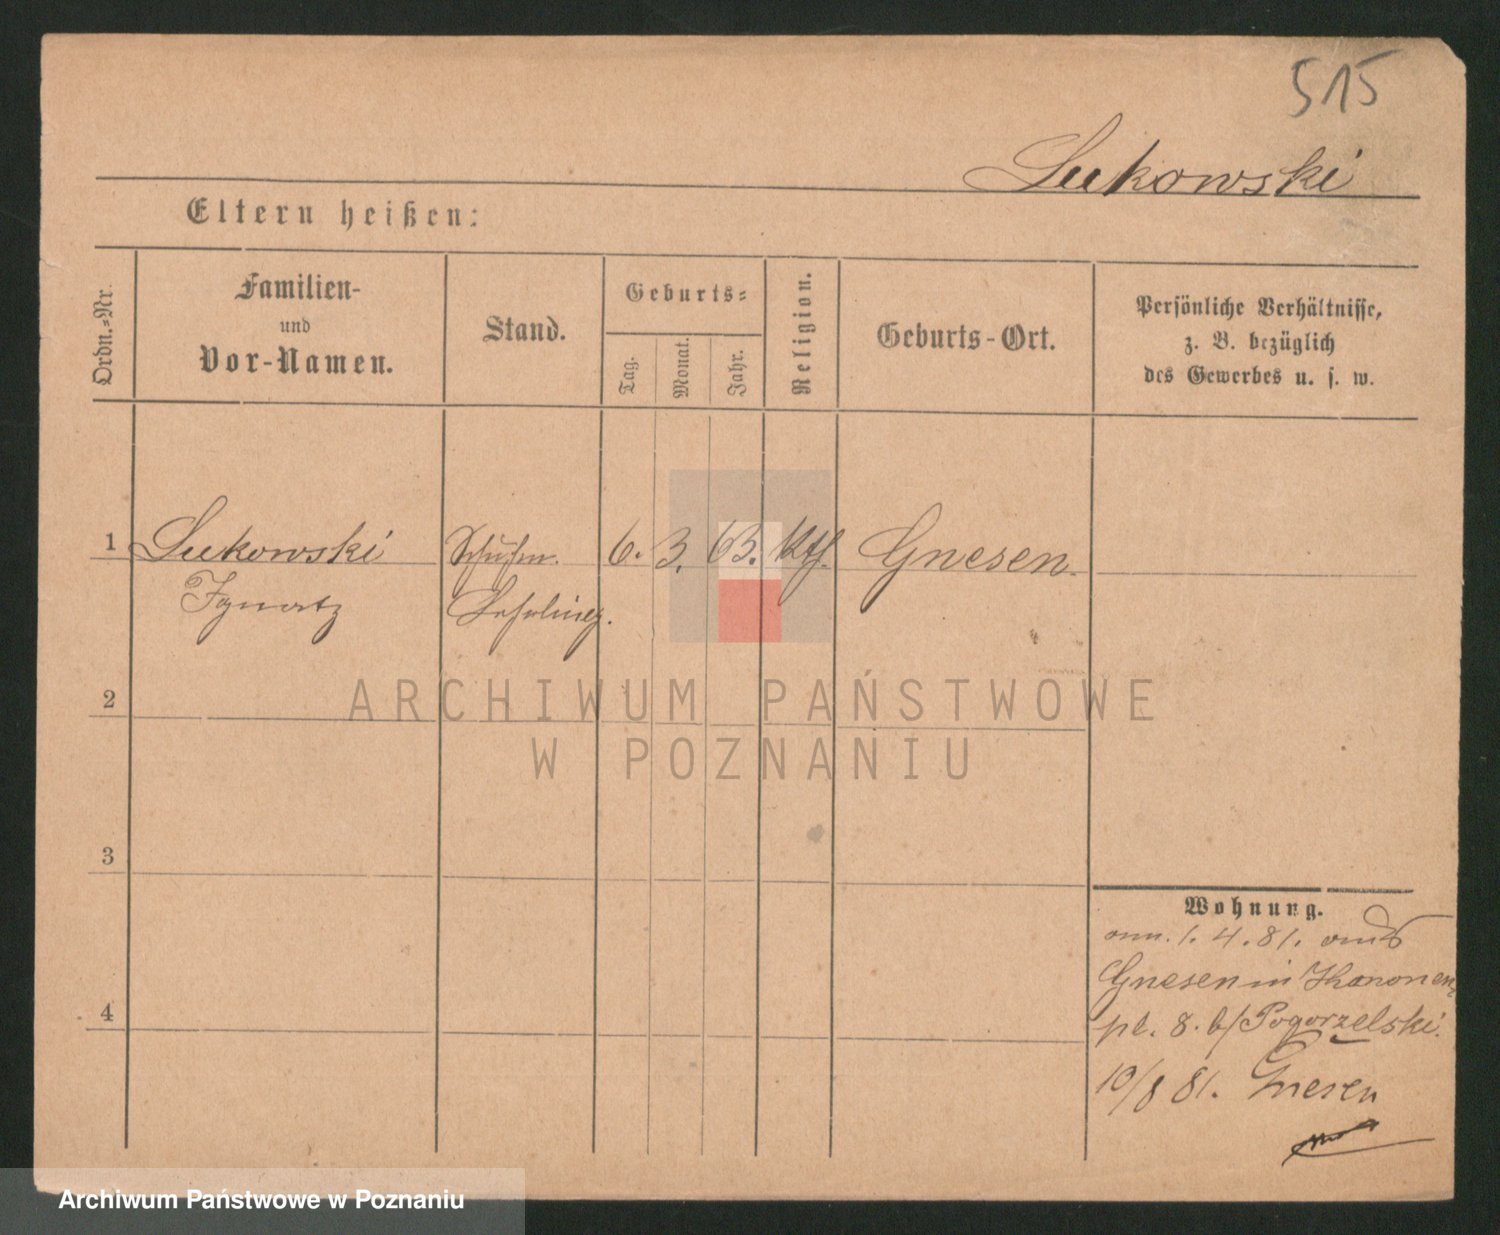 515
Lukowski
Eltern heißen:
Ordn.=Nr.
Familien-
und
Vor-Namen.
Stand.
Geburts=
Tag.
Monat.
Jahr.
Religion.
Geburts-Ort.
Persönliche Verhältnisse,
z. B. bezüglich
des Gewerbes u. s. w.
1 Lukowski Schuhm. 6. 3. 63. Kth. Gnesen.
Ignatz Lehrling.
2
3
4
Wohnung.
am. 1. 4. 81. aus
Gnesen in Kanonen
pl. 8. b/ Pogorzelski.
10/8 81. Gnesen
ARCHIWUM PAŃSTWOWE
W POZNANIU
Archiwum Państwowe w Poznaniu